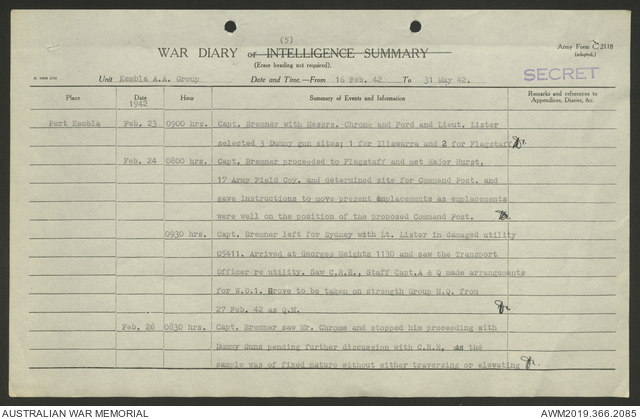 (5)
WAR DIARY OF INTELLIGENCE SUMMARY
(Erase heading not required).
Army Form C 2118
(adapted.)
SECRET
Unit Kembla A.A. Group Date and Time.—From 16 Feb. 42 To 31 May 42.
Place Date Hour Summary of Events and Information Remarks and references to
Appendices, Diaries, &c.
1942
Port Kembla Feb. 23 0900 hrs. Capt. Bremner with Messrs. Chrome and Ford and Lieut. Lister
selected 3 Dummy gun sites; 1 for Illawarra and 2 for Flagstaff.
Feb. 24 0800 hrs. Capt. Bremner proceeded to Flagstaff and met Major Hurst,
17 Army Field Coy. and determined site for Command Post. and
gave instructions to move present emplacements as emplacements
were well on the position of the proposed Command Post.
0930 hrs. Capt. Bremner left for Sydney with Lt. Lister in damaged utility
05411. Arrived at Georges Heights 1130 and saw the Transport
Officer re utility. Saw C.R.E., Staff Capt.A & Q made arrangements
for W.O.1. Drove to be taken on strength Group H.Q. from
27 Feb. 42 as Q.M.
Feb. 26 0830 hrs. Capt. Bremner saw Mr. Chrome and stopped him proceeding with
Dummy Guns pending further discussion with C.R.E, as the
sample was of fixed nature without either traversing or elevating
AUSTRALIAN WAR MEMORIAL AWM2019.366.2085